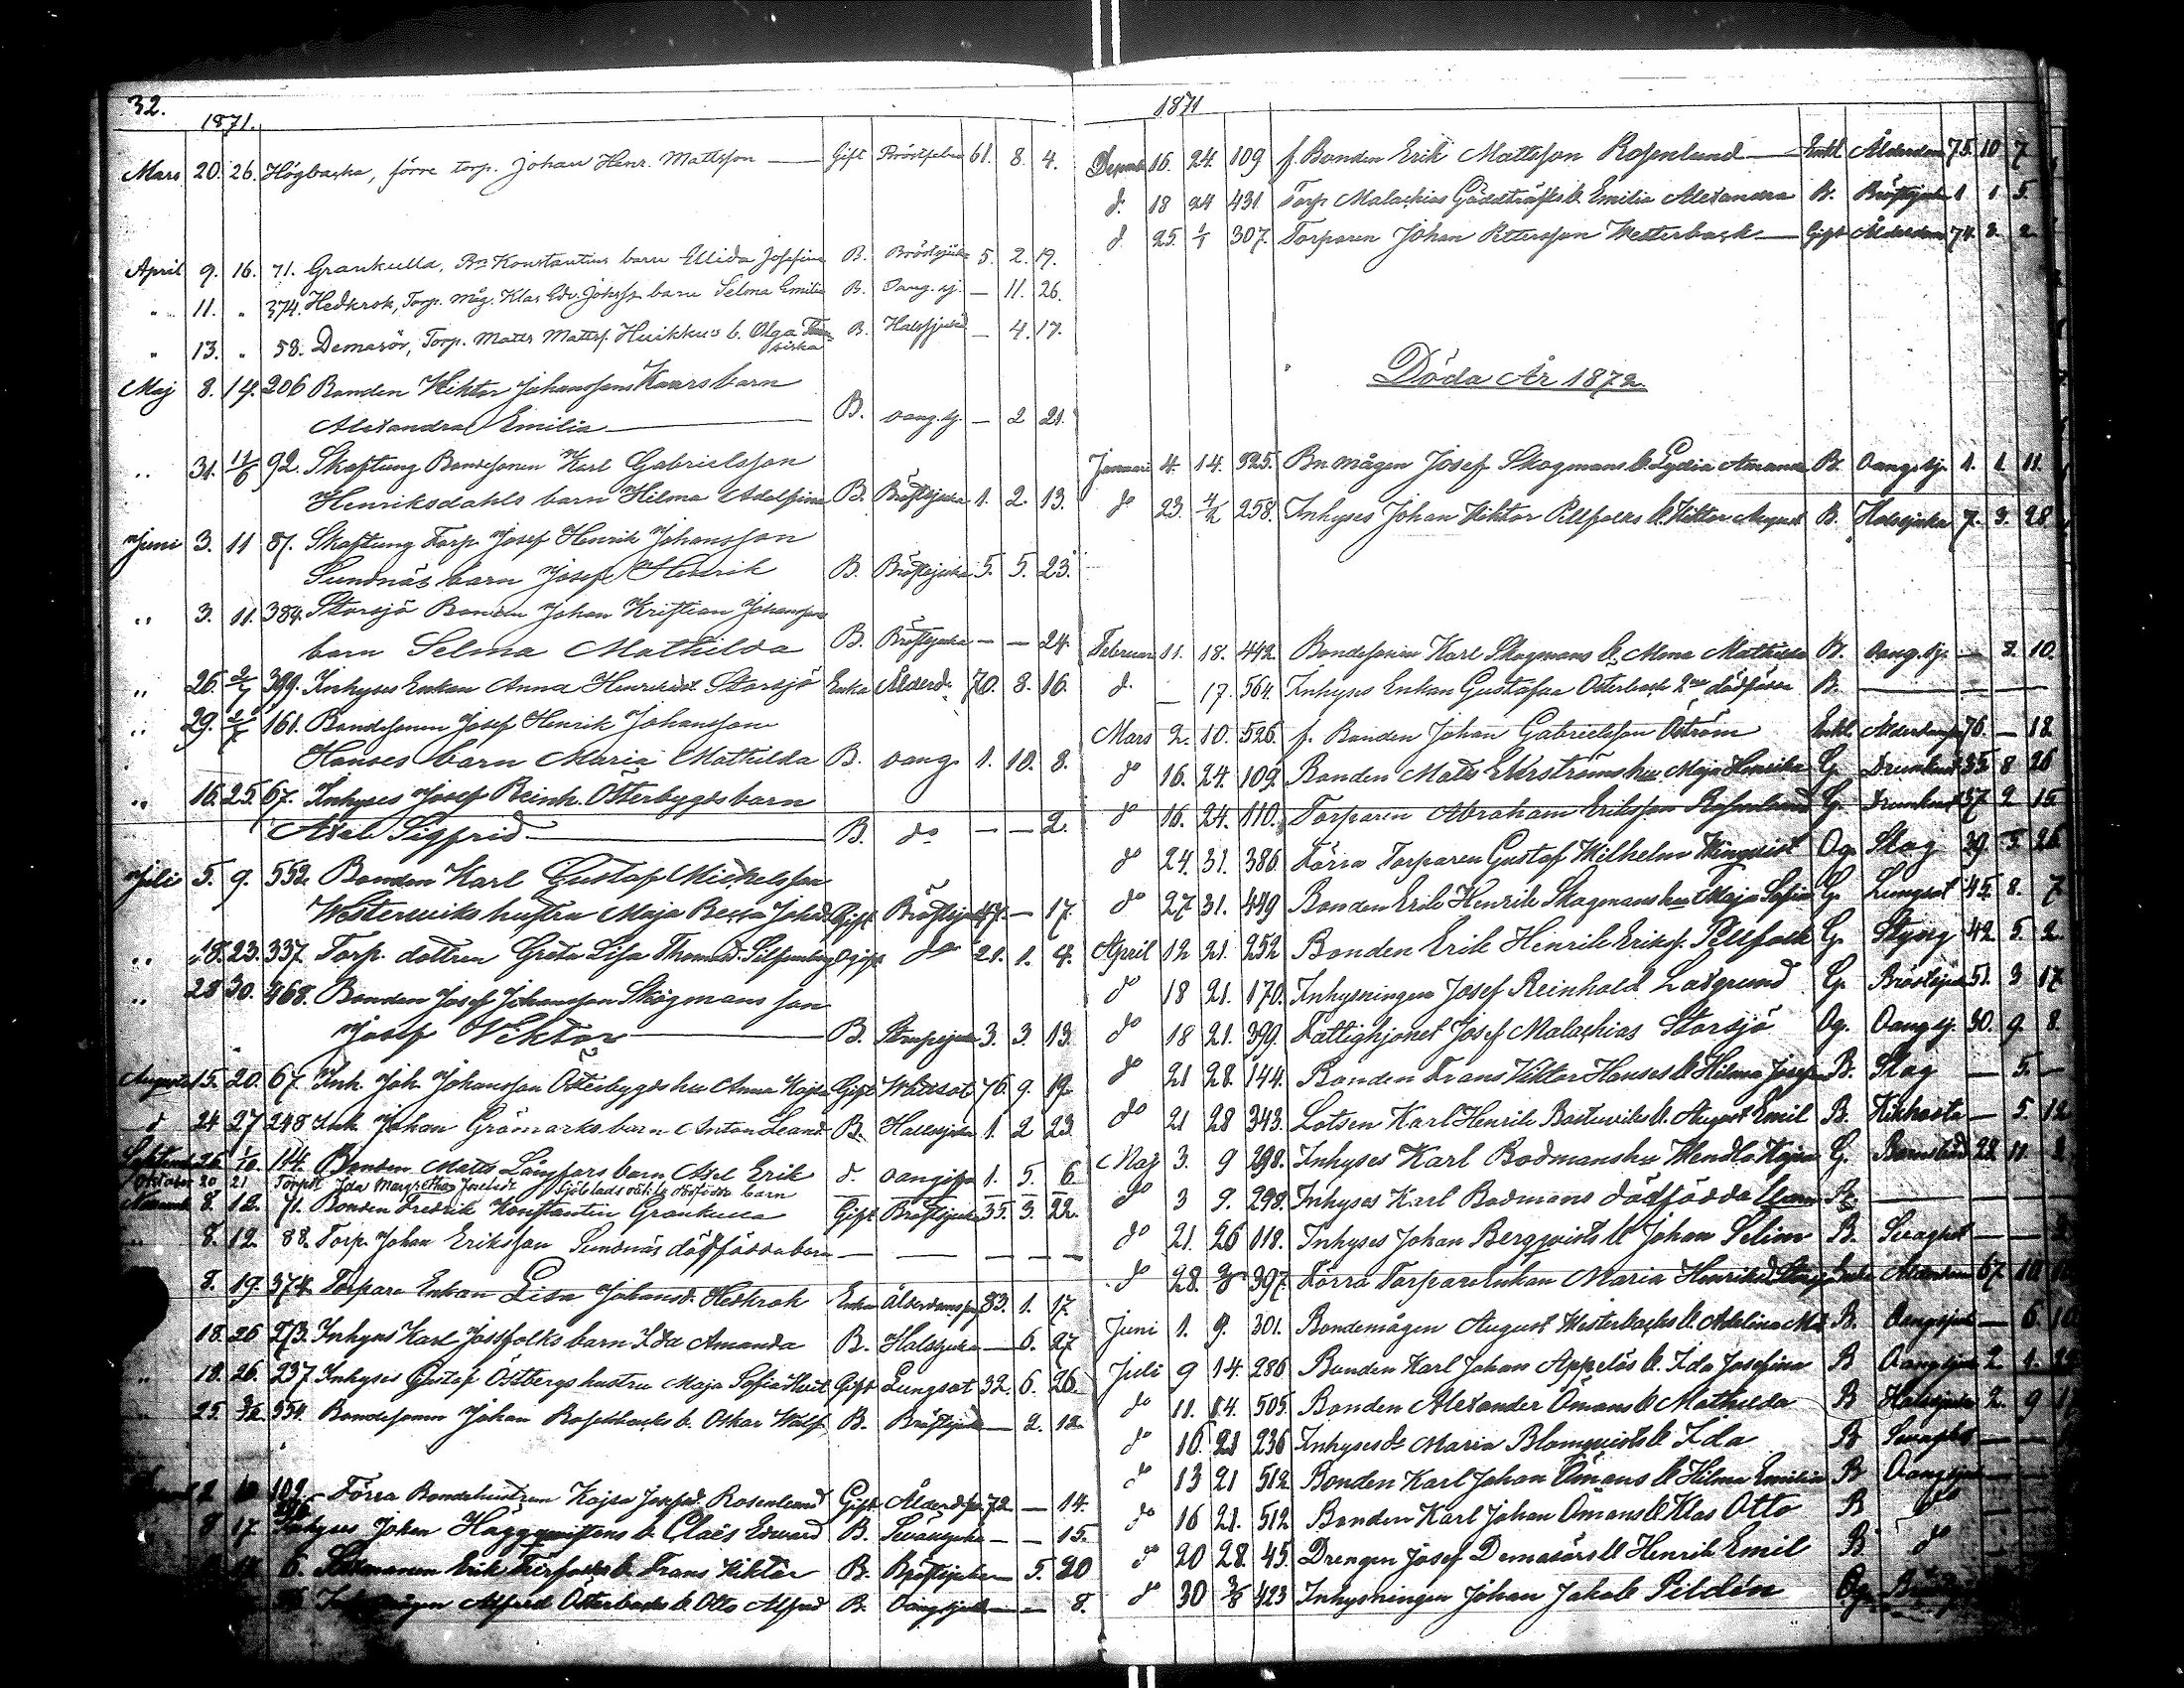 32.
1871.
Mars 20. 26. Högbacka, förre torp. Johan Henr. Mattsson — Gift Bröstfeber 61. 8. 4.
April 9. 16. 71. Grankulla, Bn Konstantins barn Ellida Josefina B. Bröstsjuka 5. 2. 19.
" 11. " 374. Hedkrok, Torp. måg. Klas Edv. Johs barn Selma Emilia B. Oang. sj. — 11. 26.
" 13. " 58. Demasör, Torp. Matts Matts. Huikku's b. Olga B. Halssjuka — 4. 17.
Maj 8. 14. 206 Bonden Viktor Johanssons Kaars barn
Alexandra Emilia — B. oang. sj. — 2 21.
" 31. 11/6 92. Skaftung Bondesonen Karl Gabrielsson
Henriksdahls barn Hilma Adolfina B. Bröstsjuka 1. 2. 13.
Juni 3. 11 87. Skaftung Torp. Josef Henrik Johansson
Sundnäs barn Josef Henrik B. Bröstsjuka 5. 5. 23.
" 3. 11. 384. Storsjö Bonden Johan Kristian Johanssons
barn Selma Mathilda B. Bröstsjuka — — 24.
" 26. 2/7 399. Inhyses Enkan Anna Henriksd. Storsjö Enka Ålderd. 70. 8. 16.
" 29. 2/7 161. Bondesonen Josef Henrik Johansson
Hanses barn Maria Mathilda B. oang. 1. 10. 8.
" 16. 25. 67. Inhyses Josef Reinh. Österbygds barn
Axel Sigfrid — B. do — — 2.
Juli 5. 9. 552. Bonden Karl Gustaf Mickelsson
Westerviks hustru Maja Johsd. Gift Bröstsjuka 47. — 17.
" 18. 23. 337. Torp. dottren Greta Lisa Thomasd. Ogift do 21. 1. 4.
" 28 30. 468. Bonden Josef Johansson Skogmans son
Josef Viktor — B. Strupsjuka 3. 3. 13.
Augusti 15. 20. 67. Inh. Joh. Johansson Österbygds hu Anna Kajsa Gift Wattsot 76. 9. 19.
d 24 27 248 Inh. Johan Grömarks barn Anton Leand. B. Halssjuka 1. 2 23
26 1/10. 114. Bonden Matts Långfors barn Axel Erik d. oangifven 1. 5. 6
Oktober 20 21 Torpd. Ida Margretha Josefsd. Sjöblads oäkta dödfödda barn
Novemb. 8. 12. 71. Bonden Fredrik Konstantin Grankulla Gift Bröstsjuka 35. 3. 22.
" 8. 12. 88. Torp. Johan Eriksson Sundnäs dödfödda barn — — — — —
8. 19. 374. Torpare Enkan Lisa Johansd. Hedkrok Enka Ålderdom 83. 1. 17.
18. 26 273. Inhyses Karl Jossfolks barn Ida Amanda B. Halssjuka — 6. 27
" 18. 26. 237 Inhyses Gustaf Östbergs hustru Maja Sofia Gift Lungsot 32. 6. 26.
" 25. 3/12 554. Bondesonen Johan Rosenbacks b. Oskar B. Bröstsjuka — 2. 12.
2 10 102. Förra Bondehustrun Kajsa Josefsd. Rosenlund Gift Ålderd. 72 — 14.
8 17 Inhyses Johan Häggqvistens b. Claës Edvard B. — — 15.
6. Erik b. Frans Viktor B. Bröstsjuka — 5. 20
Alfred Österbacks b. Otto Alfred B. Oang. sjukd. — — 8.
1871
Decemb. 16. 24. 109 f. Bonden Erik Mattsson Rosenlund — Enkl. Ålderdom 75. 10 7
d. 18 24 431. Torp. Malachias Gäddträsks b. Emilia Alexandra B. Bröstsjuka 1 1 5.
d 25. 1/1 307. Torparen Johan Pettersson Westerback — Gift Ålderdom 74. 3. 2.
Döda År 1872.
Januari 4. 14. 325. Bn mågen Josef Skogmans b. Lydia Amanda B. Oang. sj. 1. 1. 11.
do 23. 4/2 258. Inhyses Johan Viktor Pellfolks b. Viktor August B. Halssjuka 7. 3. 28
Februari 11. 18. 442. Bondesonen Karl Skogmans b. Mathilda B. Oang. sj. — 8. 10.
d. — 17. 564. Inhyses Enkan Gustafva Österback 2ne dödfödda B. —
Mars 2. 10. 526. f. Bonden Johan Gabrielsson Öström Enkl. 76. — 18.
do 16. 24. 109. Bonden Matts Ekströms hu Maja Henrika G. Drunknat 35. 8 26
do 16. 24. 110. Torparen Abraham Eriksson Rosenlund G. Drunknat 57. 2 15.
do 24. 31. 386. Förra Torparen Gustaf Wilhelm Wingqvist Og. Slag 39. 5 26
do 27 31. 449 Bonden Erik Henrik Skogmans hu Maja Sofia G. Lungsot 45. 8. 7
April 12 21. 252 Bonden Erik Henrik Erikss. Pellfolk G. Styng 42. 5. 2.
do 18 21. 170. Inhysningen Josef Reinhold Laxgrund G. Bröstsjuka 51. 3 17.
do 18 21. 399. Fattighjonet Josef Malachias Storsjö Og. Oang. sj. 30. 9. 8.
do 21 28. 144. Bonden Frans Viktor Hanses b. Hilma Josefina B. Slag — 5. —
do 21 28 343. Lotsen Karl Henrik Bastuviks b. August Emil B. Kikhosta — 5. 12
Maj 3. 9 298. Inhyses Karl Bodmans hu Wendla Kajsa G. Barnsbörd 28. 11.
do 3 9. 298. Inhyses Karl Bodmans dödfödda barn B. —
do 21. 26 118. Inhyses Johan Bergqvists b. Johan Selim B. Svaghet — —
d 28. 397. Förra Torpare Enkan Maria Henriksd. Enka Ålderdom 67. 10
Juni 1. 9. 301. Bondemågen August Westerbacks b. Adelina B. Oang. sjukd. — 6.
Juli 9 14. 286. Bonden Karl Johan Appelös b. Ida Josefina B Oang. sjukd. 2. 1.
do 11. 14. 505. Bonden Alexander Ömans b. Mathilda B Halssjuka 2. 9
do 16. 21 236 Inhyses Maria Blomqvists b. Ida B Svaghet —
d 13 21 512. Bonden Karl Johan Ömans b. Hilma Emilia B Oang. sjukd.
do 16 21. 512 Bonden Karl Johan Ömans b. Klas Otto B do
d 20 28. 45. Drengen Josef Demasörs b. Henrik Emil B d
do 30 423 Inhysningen Johan Jakob Pildén Og.